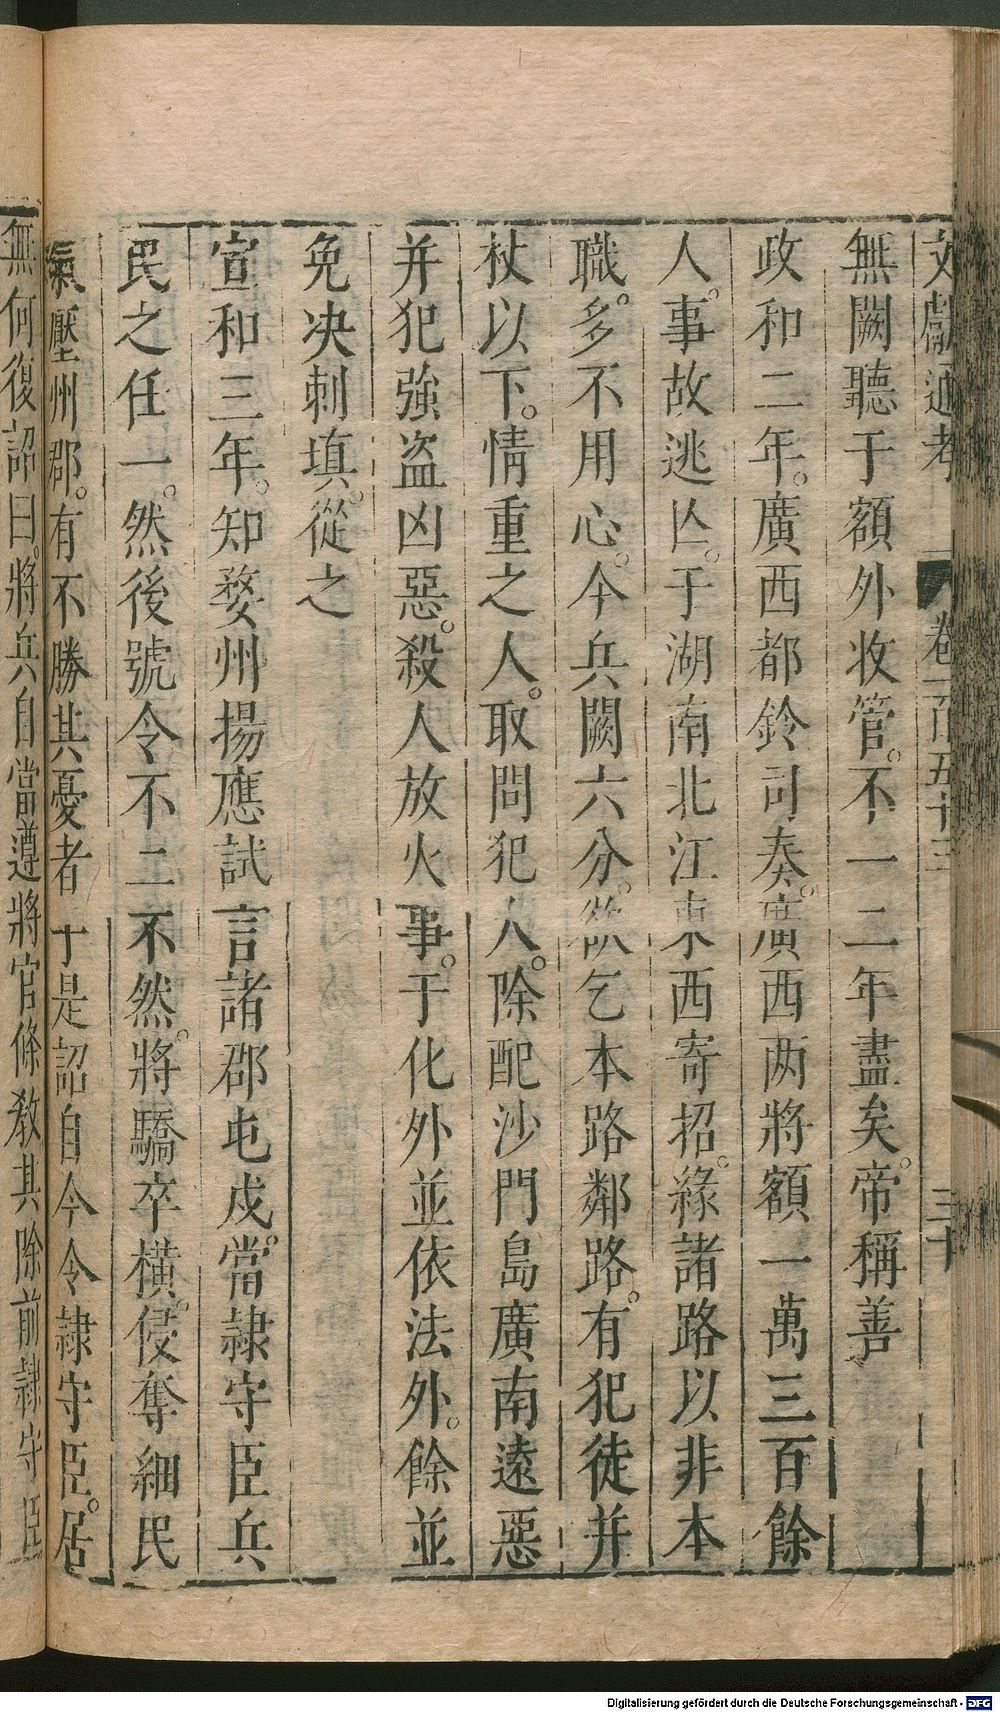 文獻通考 卷一百五十三 三十
無闕聽于額外收管。不一二年盡矣。帝稱善
政和二年。廣西都鈐司奏。廣西两將額一萬三百餘
人。事故逃亾。于湖南北江東西寄招。緣諸路以非本
職。多不用心。今兵闕六分。欲乞本路鄰路。有犯徒并
杖以下。情重之人。取問犯人。除配沙門島廣南遠惡
并犯強盗凶惡。殺人放火事。于化外並依法外。餘並
免决刺填。從之
宣和三年。知婺州揚應試言諸郡屯戍。當隷守臣兵
民之任一。然後號令不二不然。將驕卒橫。侵奪細民
氣壓州郡。有不勝其憂者于是詔自今令隷守臣。居
無何復詔曰。將兵自當遵將官條教其除前隷守臣
Digitalisierung gefördert durch die Deutsche Forschungsgemeinschaft - DFG